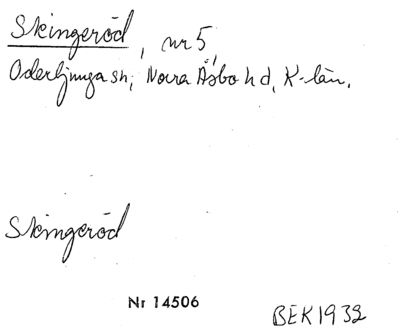 Skingeröd, nr 5,
Oderljunga sn, Norra Åsbo hd, K-län.
Skingeröd
Nr 14506
BEK1932